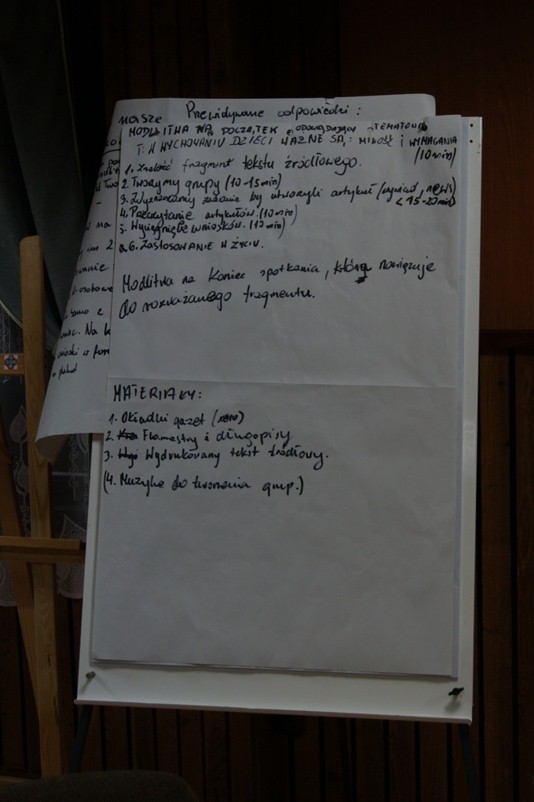 nasze
Przewidywane odpowiedzi:
MODLITWA NA POCZĄTEK odpowiadający TEMATOWI
T: W WYCHOWANIU DZIECI WAŻNE SĄ: MIŁOŚĆ I WYMAGANIA
(10 min)
1. Znaleźć fragment tekstu źródłowego.
2. Tworzymy grupy (10-15 min)
3. Wyznaczamy zadanie by utworzyli artykuł / wywiad, news
< 15-20 min)
4. Przeczytanie artykułów. (10 min)
5. Wyciągnięcie wniosków. (10 min)
6. ZASTOSOWANIE W ŻYCIU.
Modlitwa na koniec spotkania, która nawiązuje
do rozważanego fragmentu.
MATERIAŁY:
1. Okładki gazet
2. Flamastry i długopisy
3. Wydrukowany tekst źródłowy.
(4. Muzyka do tworzenia grup.)